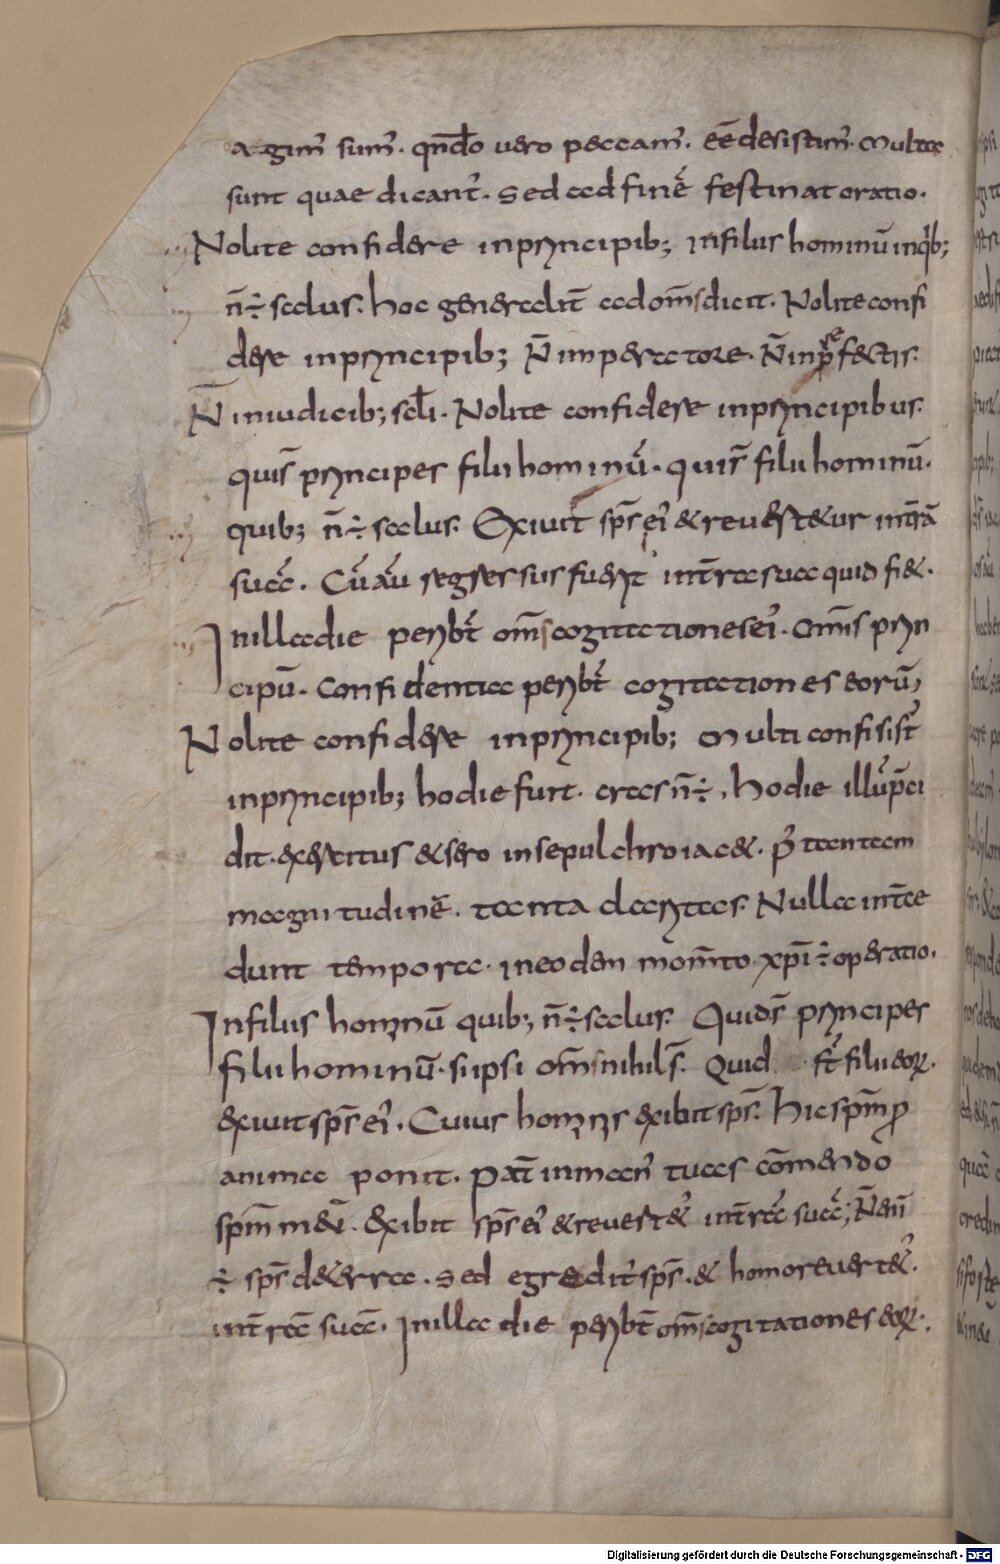 agim̄ sum̄. qn̄do vero peccam̄. eē desistim̄. Multa
sunt quae dicant̄. Sed ad finē festinat oratio.
Nolite confidere in principib; in filiis hominū in qib;
n̄ ÷ salus. hoc generalit̄ ad om̄s dicit. Nolite confi
dere in principib; N̄ in peratore. N̄ in prefectis.
N̄ in iudicib; scłi. Nolite confidere in principibus.
quis̄ principes filii hominū. quis̄ filii hominū.
quib; n̄ ÷ salus. Exivit sps̄ ei' & revert&ur in t̄rā
suā. Cū aū regressus fuerit in t̄ra sua quid fi&.
In illa die peribt̄ om̄s cogitationes ei'. Om̄is prin
cipū. Confidentia peribt̄ cogitationes eorū;
Nolite confidere in principib; Multi confisi st̄
in principib; hodie funt. cras n̄ ÷, hodie illū p̄ci
dit. exercitus & sero in sepulchro iac&. p̄ tantam
magnitudinē. tanta claritas. Nulla int̄ce
dunt tempora. in eodem mom̄to xpī ÷ operatio.
In filiis hominū quib; n̄ ÷ salus. Quid s̄ principes
filii hominū. si ipsi om̄s nihil s̄. Quid ft̄ filii eoꝝ.
exivit sps̄ ei'. Cuius hominis exibit sps̄. Hic spm̄ ꝓ
anima ponit. Pat̄ in man' tuas cōmendo
spm̄ meū. Exibit sps̄ ei' & revert&' in t̄rā suā; N̄ enī
÷ sps̄ de t̄erra. Sed egredit' sps̄. & homo revert&'.
in t̄rā suā. In illa die peribt̄ om̄s cogitationes eoꝝ.
Digitalisierung gefördert durch die Deutsche Forschungsgemeinschaft - DFG